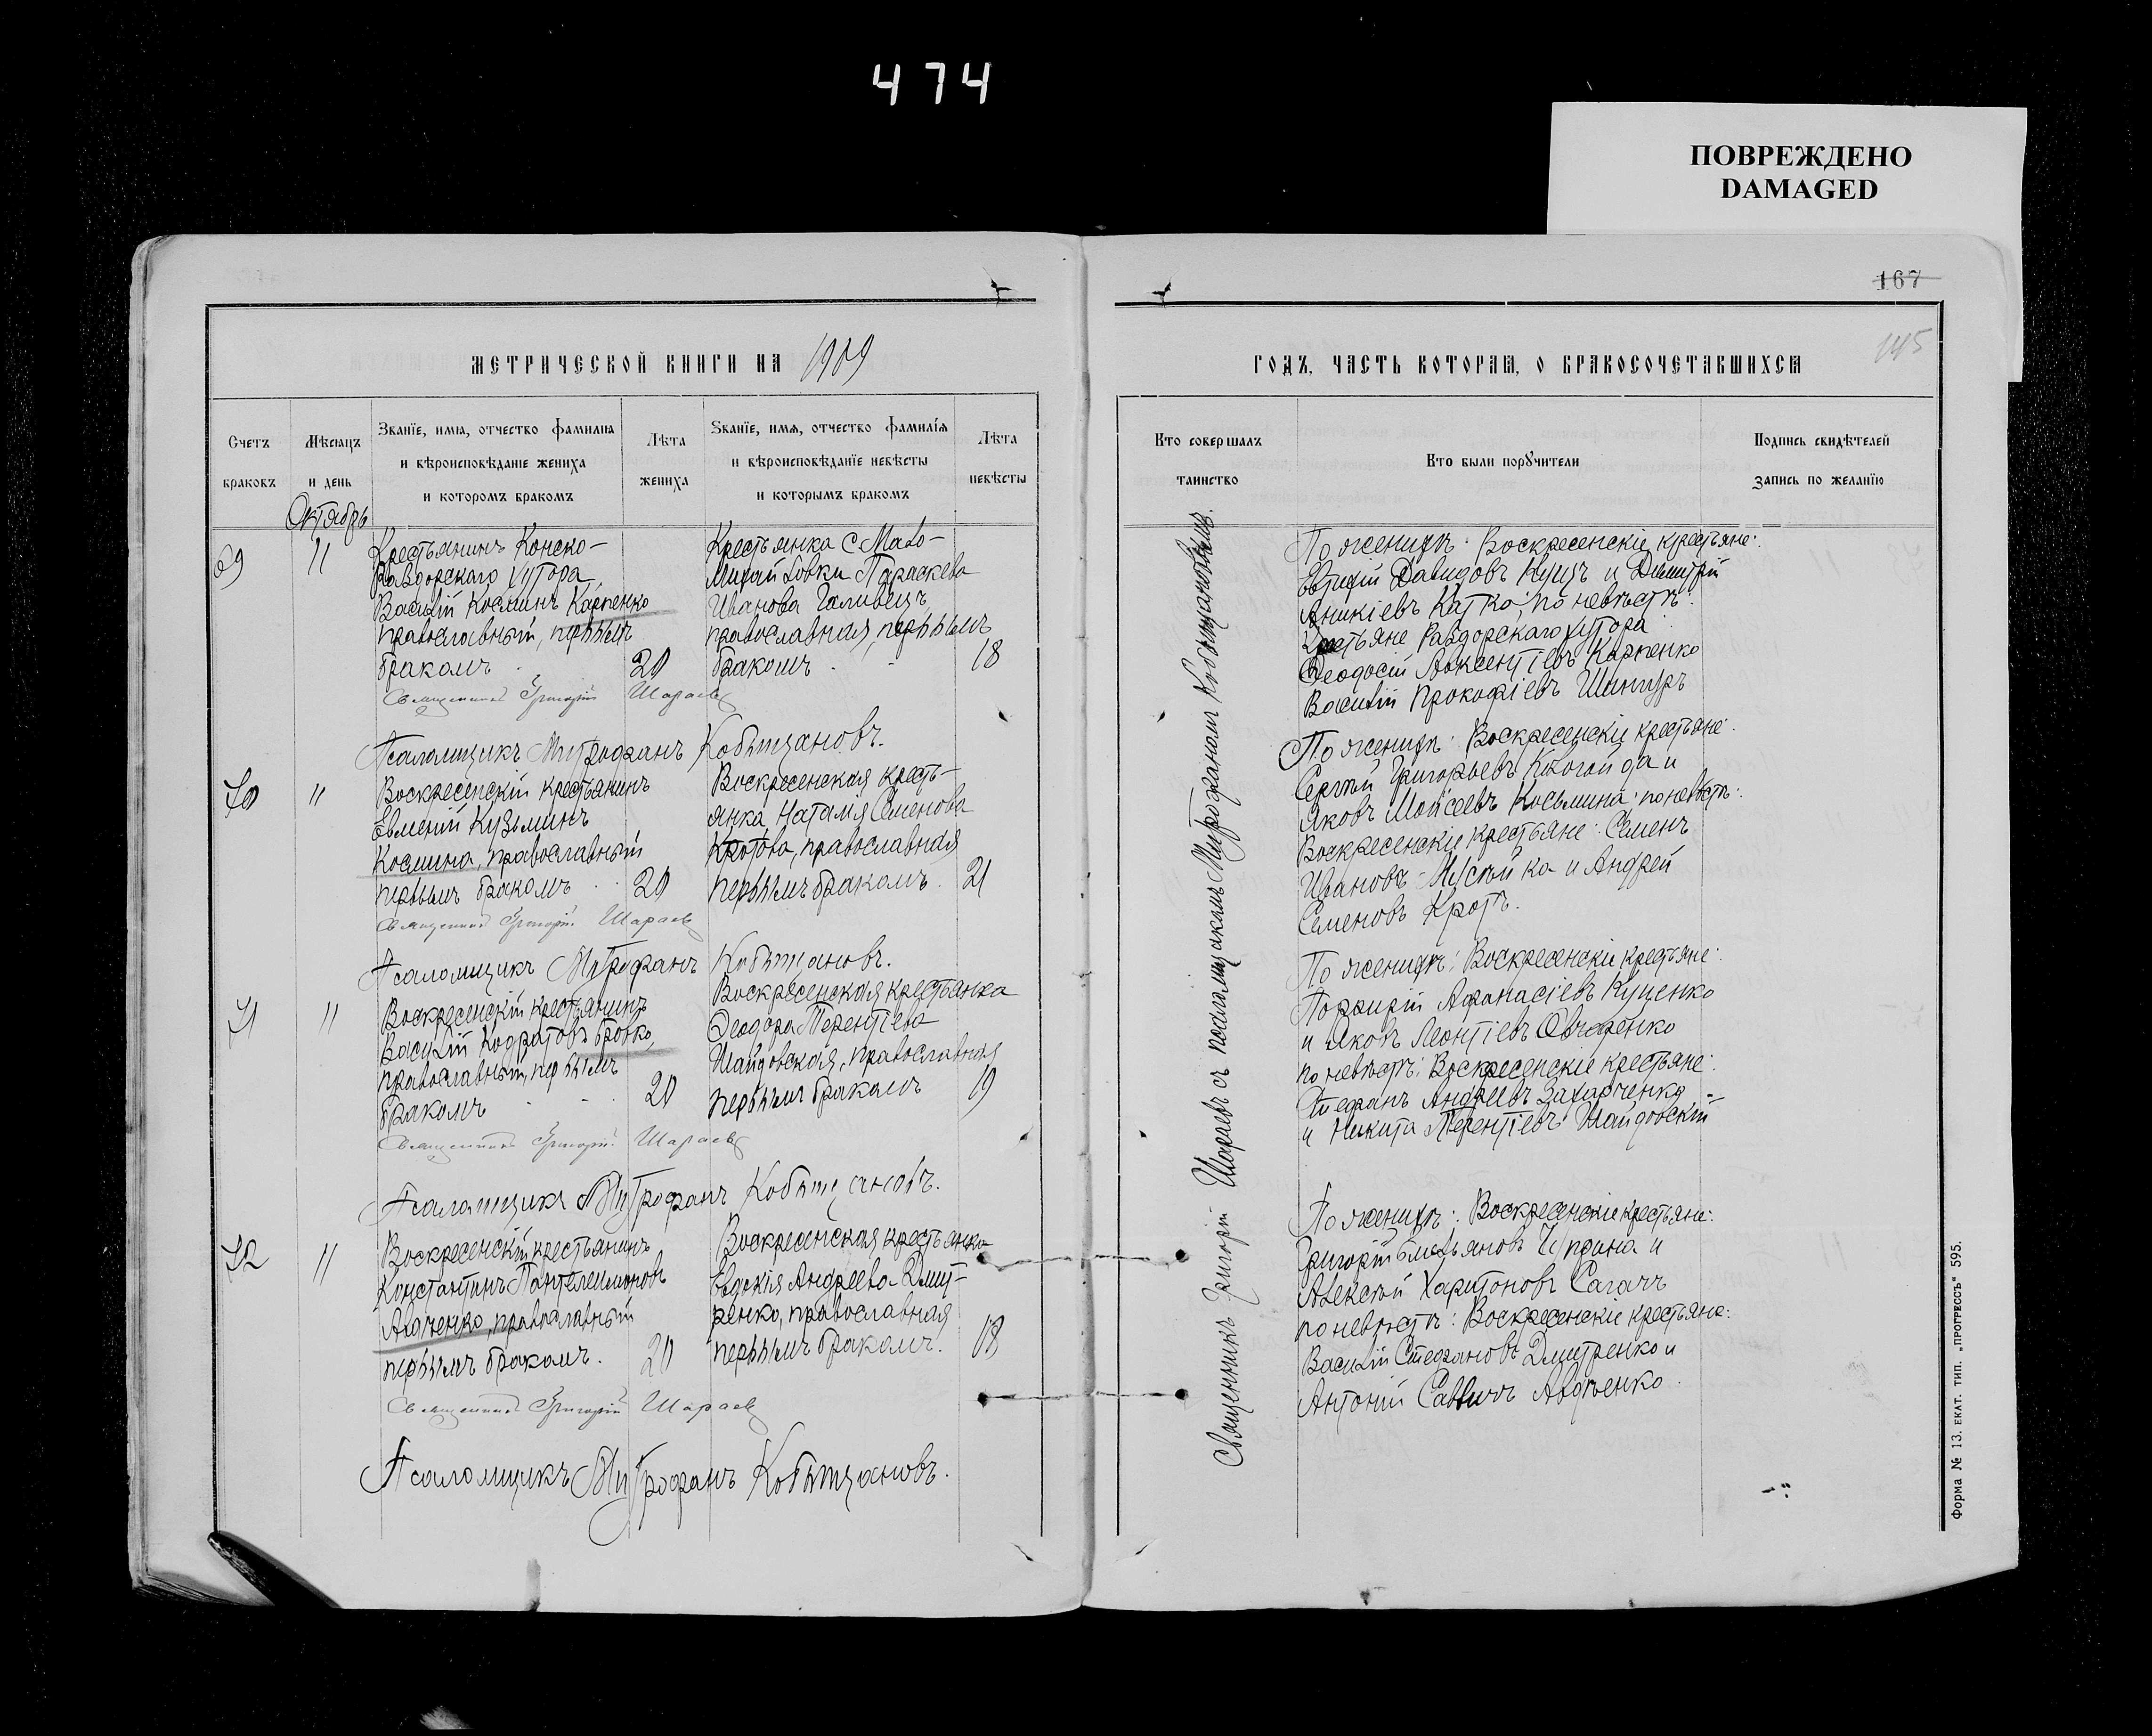 474
ПОВРЕЖДЕНО
DAMAGED
167
145
МЕТРИЧЕСКОЙ КНИГИ НА 1909
ГОДЪ, ЧАСТЬ КОТОРАЯ, О БРАКОСОЧЕТАВШИХСЯ
Счетъ
браковъ
Мѣсяцъ
и день
Званїе, имя, отчество фамилия
и вѣроисповѣданїе жениха
и которомъ бракомъ
Лѣта
жениха
Званїе, имя, отчество фамилїя
и вѣроисповѣданїе невѣсты
и которымъ бракомъ
Лѣта
невѣсты
Кто совершалъ
таинство
Кто были поручители
Подпись свидѣтелей
запись по желанїю
Октябрь
69
11
Крестьянинъ Конско-
Раздорскаго хутора
Василій Косминъ Карпенко
православный, первымъ
бракомъ
20
Крестьянка с Мало-
Михайловки Параскева
Иванова Галивецъ
православная, первымъ
бракомъ
18
Священникъ Григорій Шараевъ
Псаломщикъ Митрофанъ Кобыщановъ.
70
11
Воскресенскій крестьянинъ
Евмений Кузьминъ
Космина, православный
первымъ бракомъ
20
Воскресенская кресть-
янка Наталія Семенова
Кротова, православная
первымъ бракомъ.
21
Священникъ Григорій Шараевъ
Псаломщикъ Митрофанъ Кобыщановъ.
71
11
Воскресенскій крестьянинъ
Василій Кодратовъ Бровко,
православный, первымъ
бракомъ
20
Воскресенская крестьянка
Феодора Терентіева
Шайдовская, православная
первымъ бракомъ
19
Священникъ Григорій Шараевъ
Псаломщикъ Митрофанъ Кобыщановъ.
72
11
Воскресенскій крестьянинъ
Константинъ Пантелеимоновъ
Авдѣенко, православный
первымъ бракомъ.
20
Воскресенская крестьянка
Евдокія Андреева Дмит-
ренко, православная
первымъ бракомъ.
18
Священникъ Григорій Шараевъ
Псаломщикъ Митрофанъ Кобыщановъ.
Священникъ Григорій Шараевъ съ псаломщикомъ Митрофаномъ Кобыщановымъ.
По женихѣ: Воскресенскіе крестьяне:
Евтихій Давидовъ Куцъ и Димитрій
Аникіевъ Катко; по невѣстѣ:
Крестьяне Раздорскаго хутора
Феодосій Авксентіевъ Карпенко
Василій Прокофіевъ Шингуръ
По женихѣ: Воскресенскіе крестьяне:
Сергѣй Григорьевъ и
Яковъ Мойсеевъ Косьмина; по невѣстѣ:
Воскресенскіе крестьяне: Семенъ
Ивановъ Мусѣйко и Андрей
Семеновъ Кротъ.
По женихѣ: Воскресенскіе крестьяне:
Порфирій Афанасіевъ Куценко
и Яковъ Леонтіевъ Овчаренко
по невѣстѣ: Воскресенскіе крестьяне:
Стефанъ Андреевъ Захарченко
и Никита Терентіевъ Шайдовскій
По женихѣ: Воскресенскіе крестьяне:
Григорій Емельяновъ Чуприна и
Алексѣй Харитоновъ Сагачъ
по невѣстѣ: Воскресенскіе крестьяне:
Василій Стефановъ Дмитренко и
Антоній Саввичъ Авдѣенко
Форма № 13. ЕКАТ. ТИП. „ПРОГРЕССЪ" 595.